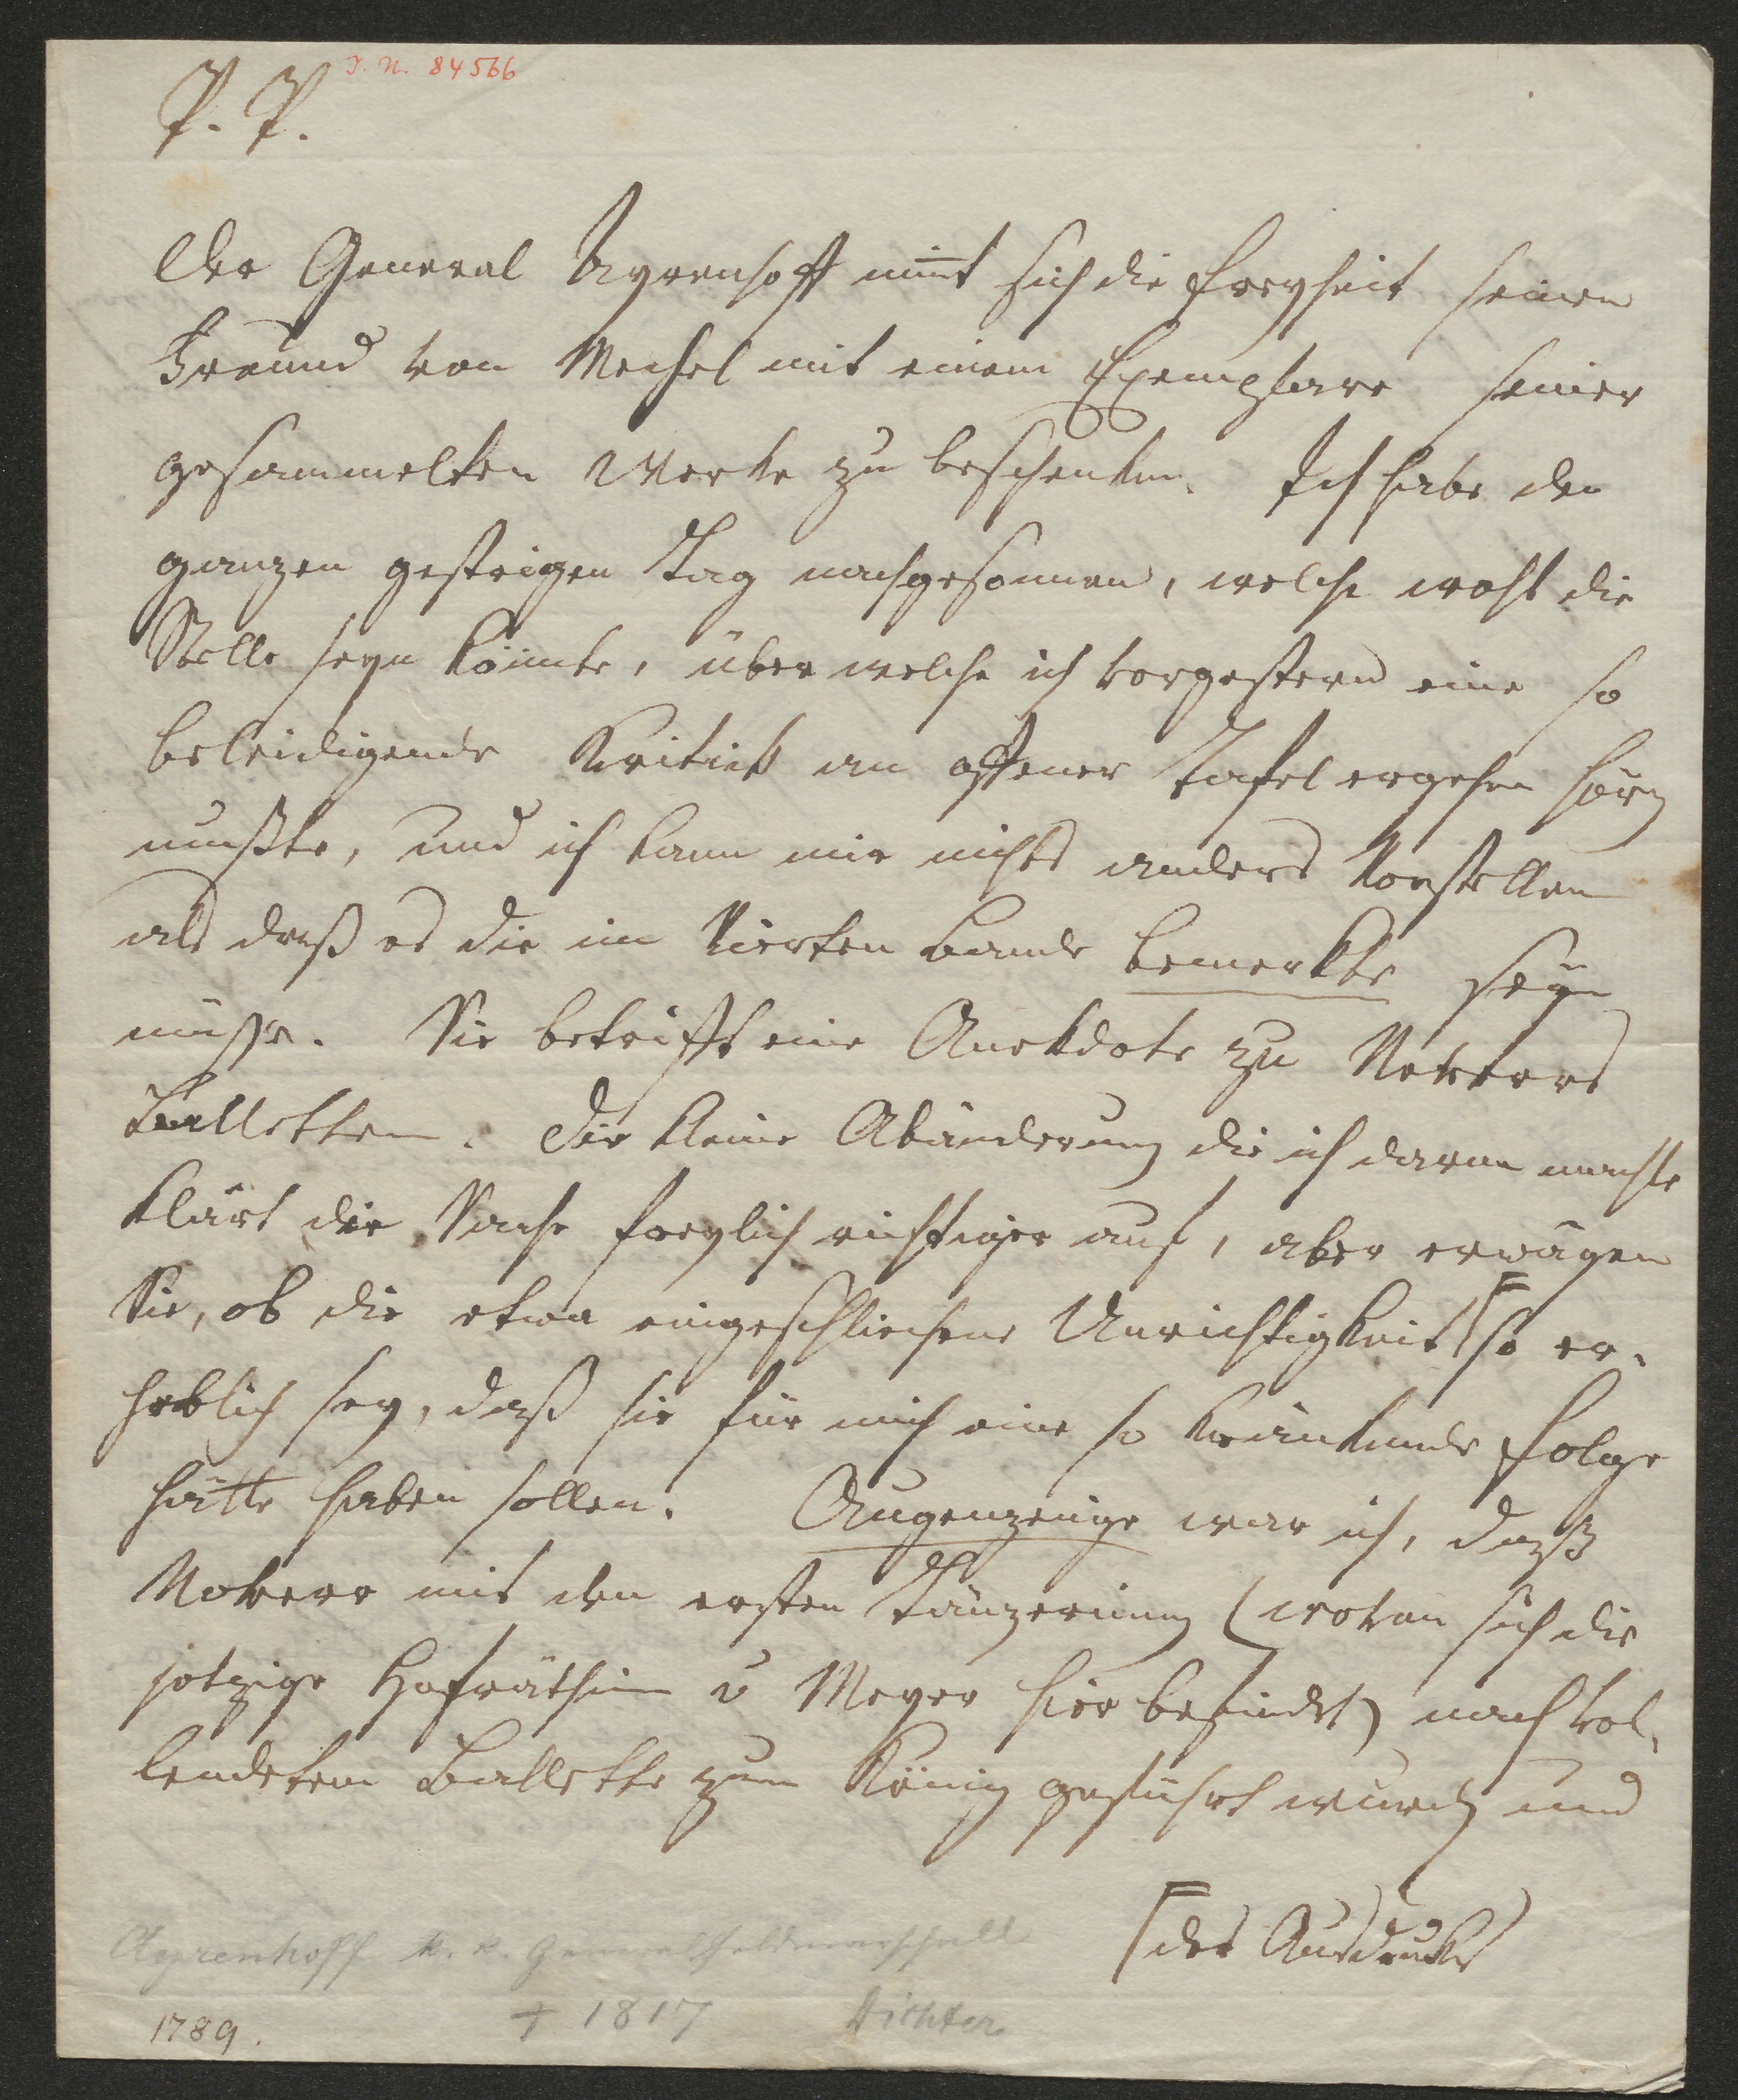 J. N. 84566
P. P.
Der General Ayrenhoff nimt sich die Freyheit seinen
Freund von Mechel mit einem Exemplare seiner
gesammelten Werke zu beschenken. Ich habe den
ganzen gestrigen Tag nachgesonnen, welche wohl die
Stelle seyn könnte, über welche ich vorgestern eine so
beleidigende Kritick an offener Tafel ergehen hören
mußte, und ich kann mir nichts anders vorstellen
als daß es die im vierten Bande bemerkte seyn
müsse. Sie betrifft eine Anekdote zu Noverrs
Balletten. Die kleine Abänderung die ich daran machte
klärt die Sache freylich richtiger auf, aber erwägen
Sie, ob die etwa eingeschliechene Unrichtigkeit so er-
heblich sey, daß sie für mich eine so kränkende Folge
hätte haben sollen. Augenzeuge war ich, daß
Noverr mit den ersten Tänzerinnen (wovon sich die
jetzige Hofräthin v Meyer hier befindet) nach vol-
lendetem Ballette zum König geführt wurden und
des Ausdrucks
Ayrenhoff k. k. Generalfeldmarschall
1789. † 1817 Dichter